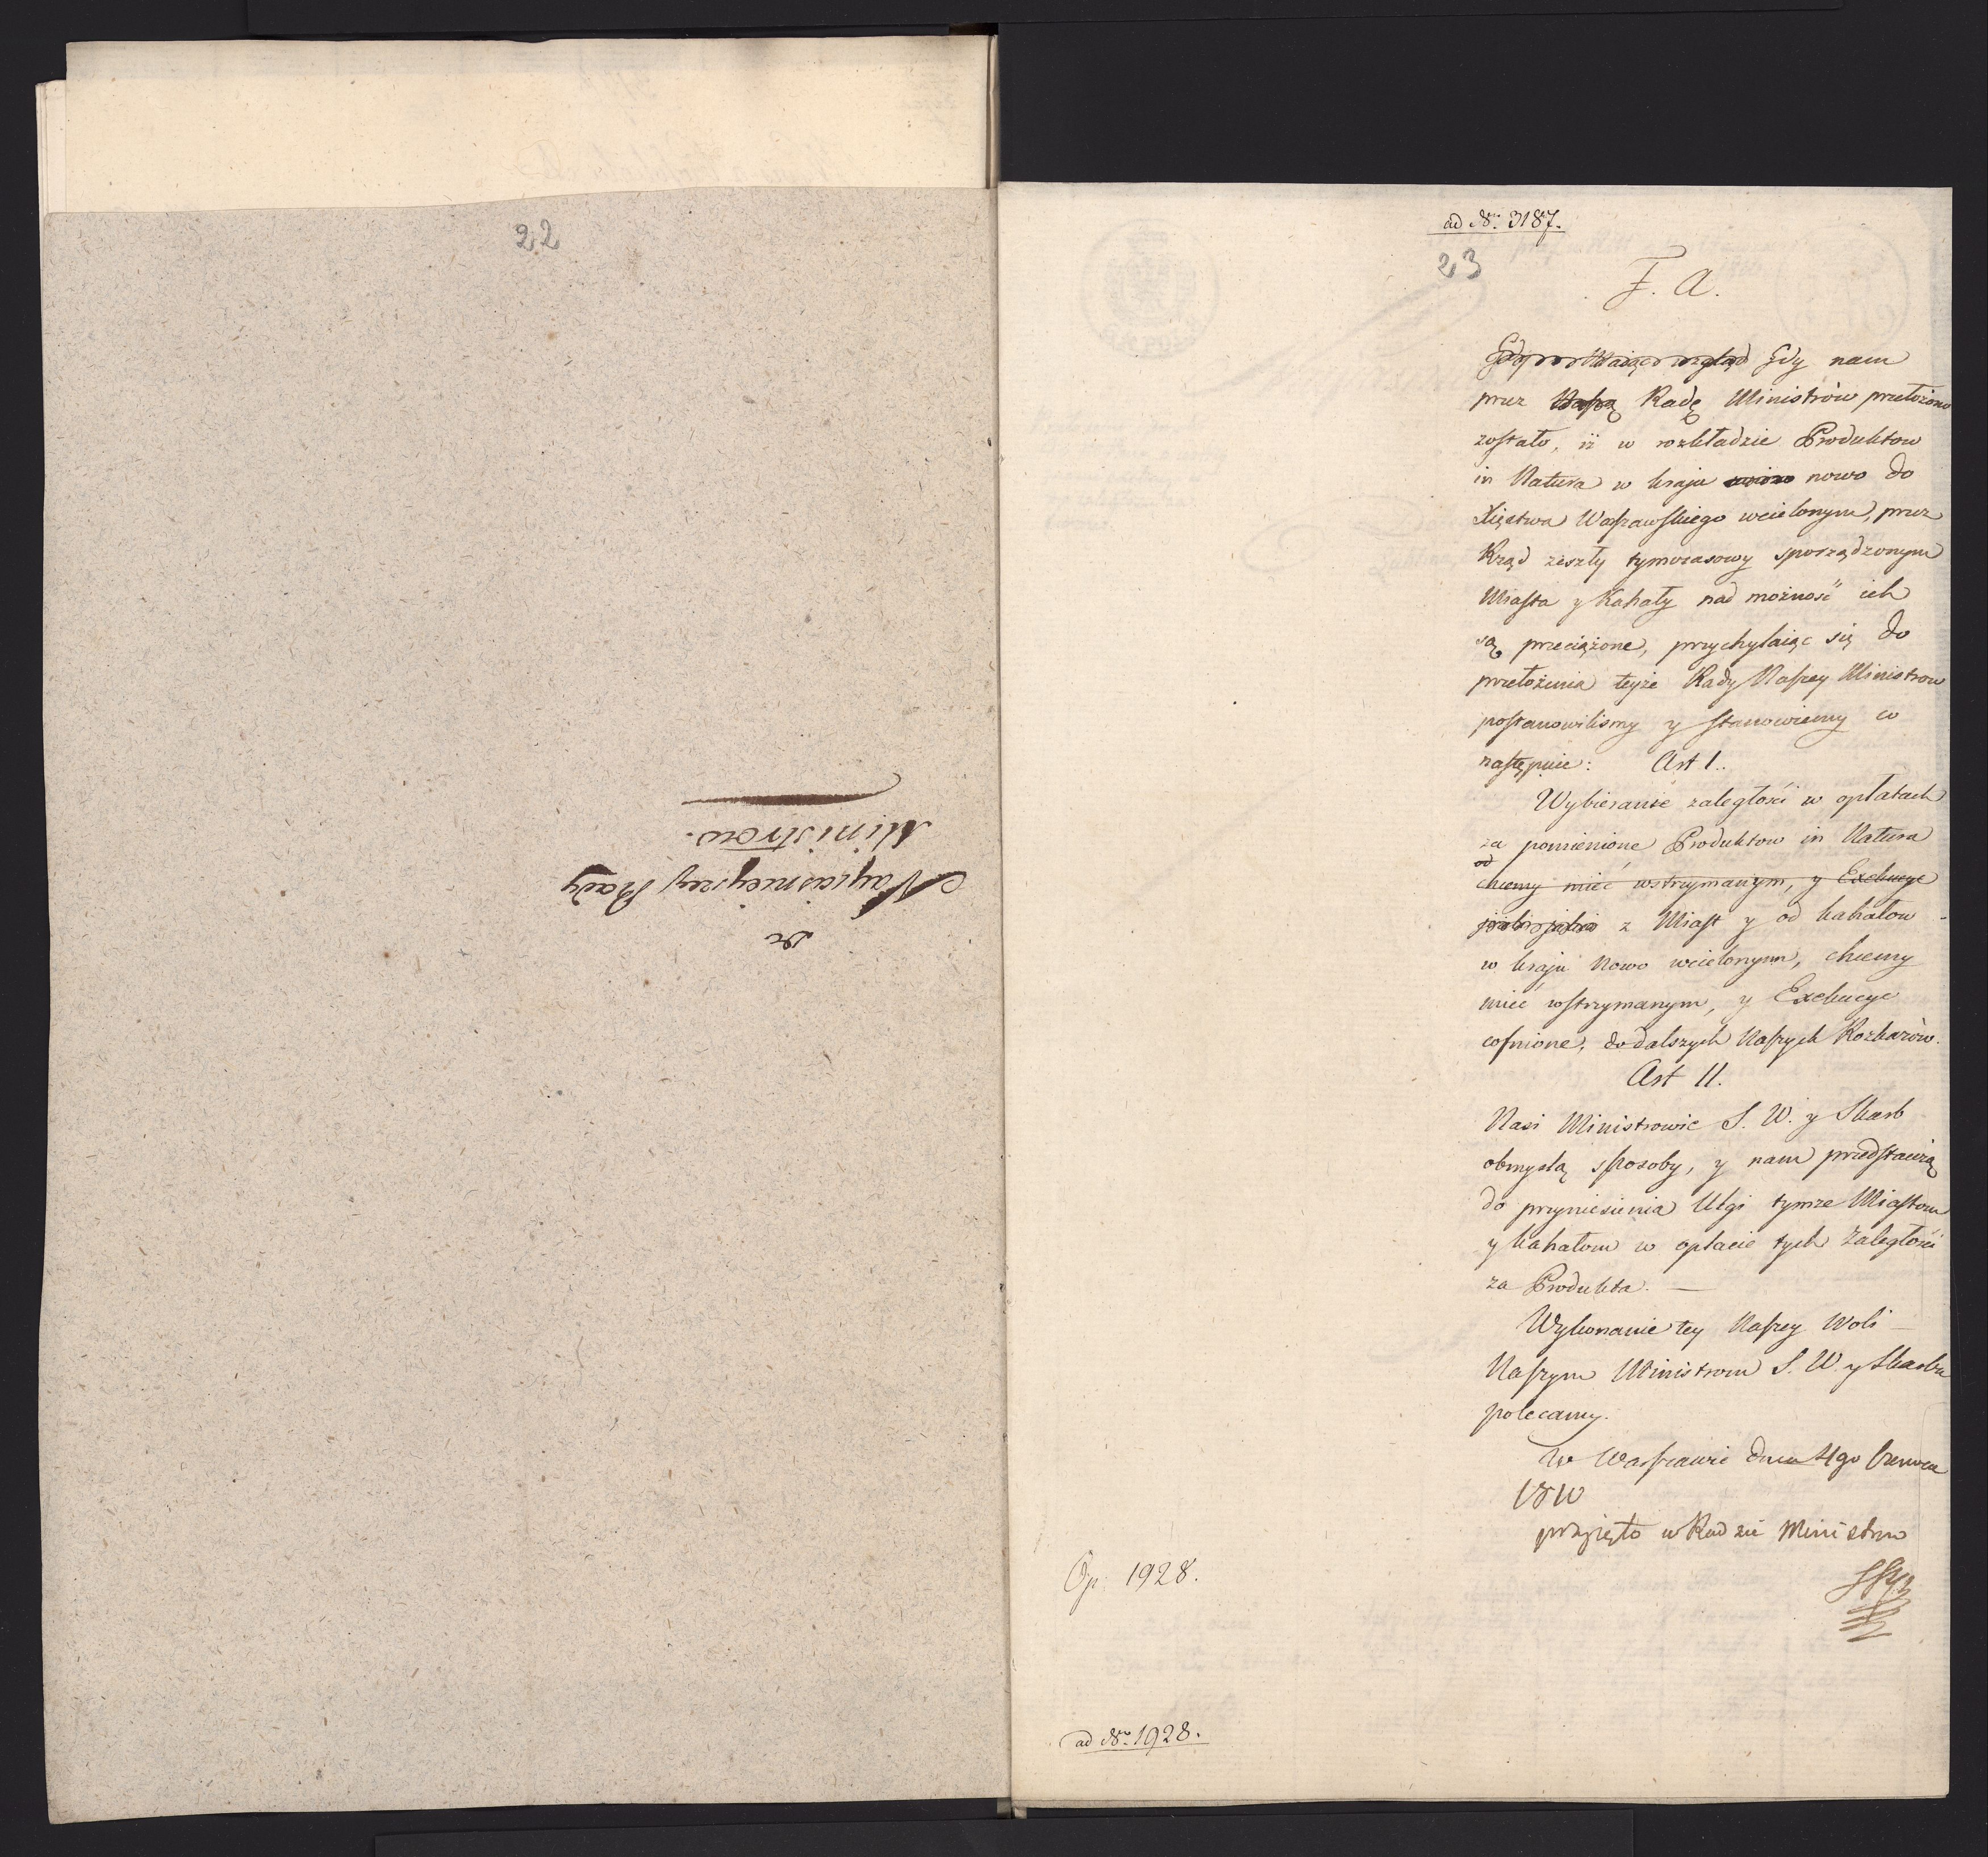 22
Do
Nayiaśnieyszey Rady
Ministrow.
ad Nr. 3187.
23
F. A.
Gdy nam
przez Naszą Radę Ministrów przełożono
zostało, iż w rozkładzie Produktow
in Natura w kraju nowo do
Xięstwa Warszawskiego wcielonym, przez
Rząd zeszły tymczasowy sporządzonym
Miasta y Kahały nad możność ich
są przeciążone, przychylaiąc się do
przełożenia teyże Rady Naszey Ministrow
postanowilismy y stanowiemy co
następuie: Art I.
Wybieranie zaległości w opłatach
za pomienione Produktow in Natura
od
chcemy mieć wstrzymanym, y Exekucye
z Miast y od kahałow
w kraju Nowo wcielonym, chcemy
mieć wstrzymanym, y Exekucye
cofnione, do dalszych Naszych Rozkazów.
Art II.
Nasi Ministrowie S. W. y Skarb
obmyslą sposoby, y nam przedstawią
do przyniesienia Ulgi tymże Miastom
y kahałom w opłacie tych Zaległości
za Produkta. —
Wykonanie tey Naszey Woli —
Naszym Ministrom S. W. y Skarbu
polecamy.
W Warszawie dnia 4go Czerwca
1810
przyięto w Radzie Ministrow
Op. 1928.
ad Nr. 1928.